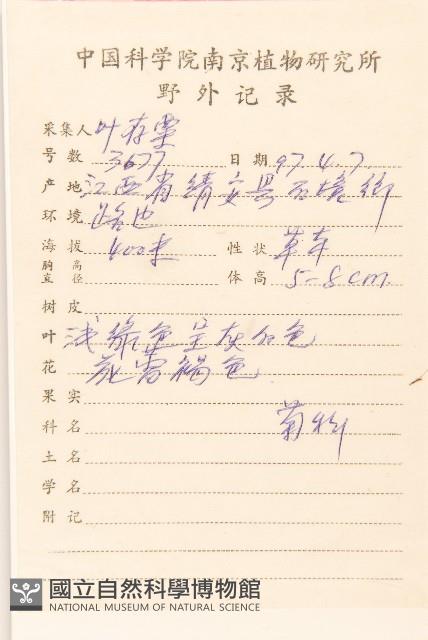 中国科学院南京植物研究所
野外记录
采集人 叶存粟
号数 3677 日期 97.4.7
产地 江西省靖安县石境乡
环境 路边
海拔 400米 性状 草本
胸高直径 体高 5-8cm.
树皮
叶 浅绿色呈灰白色
花 花富褐色
果实
科名 菊科
土名
学名
附记
國立自然科學博物館
NATIONAL MUSEUM OF NATURAL SCIENCE